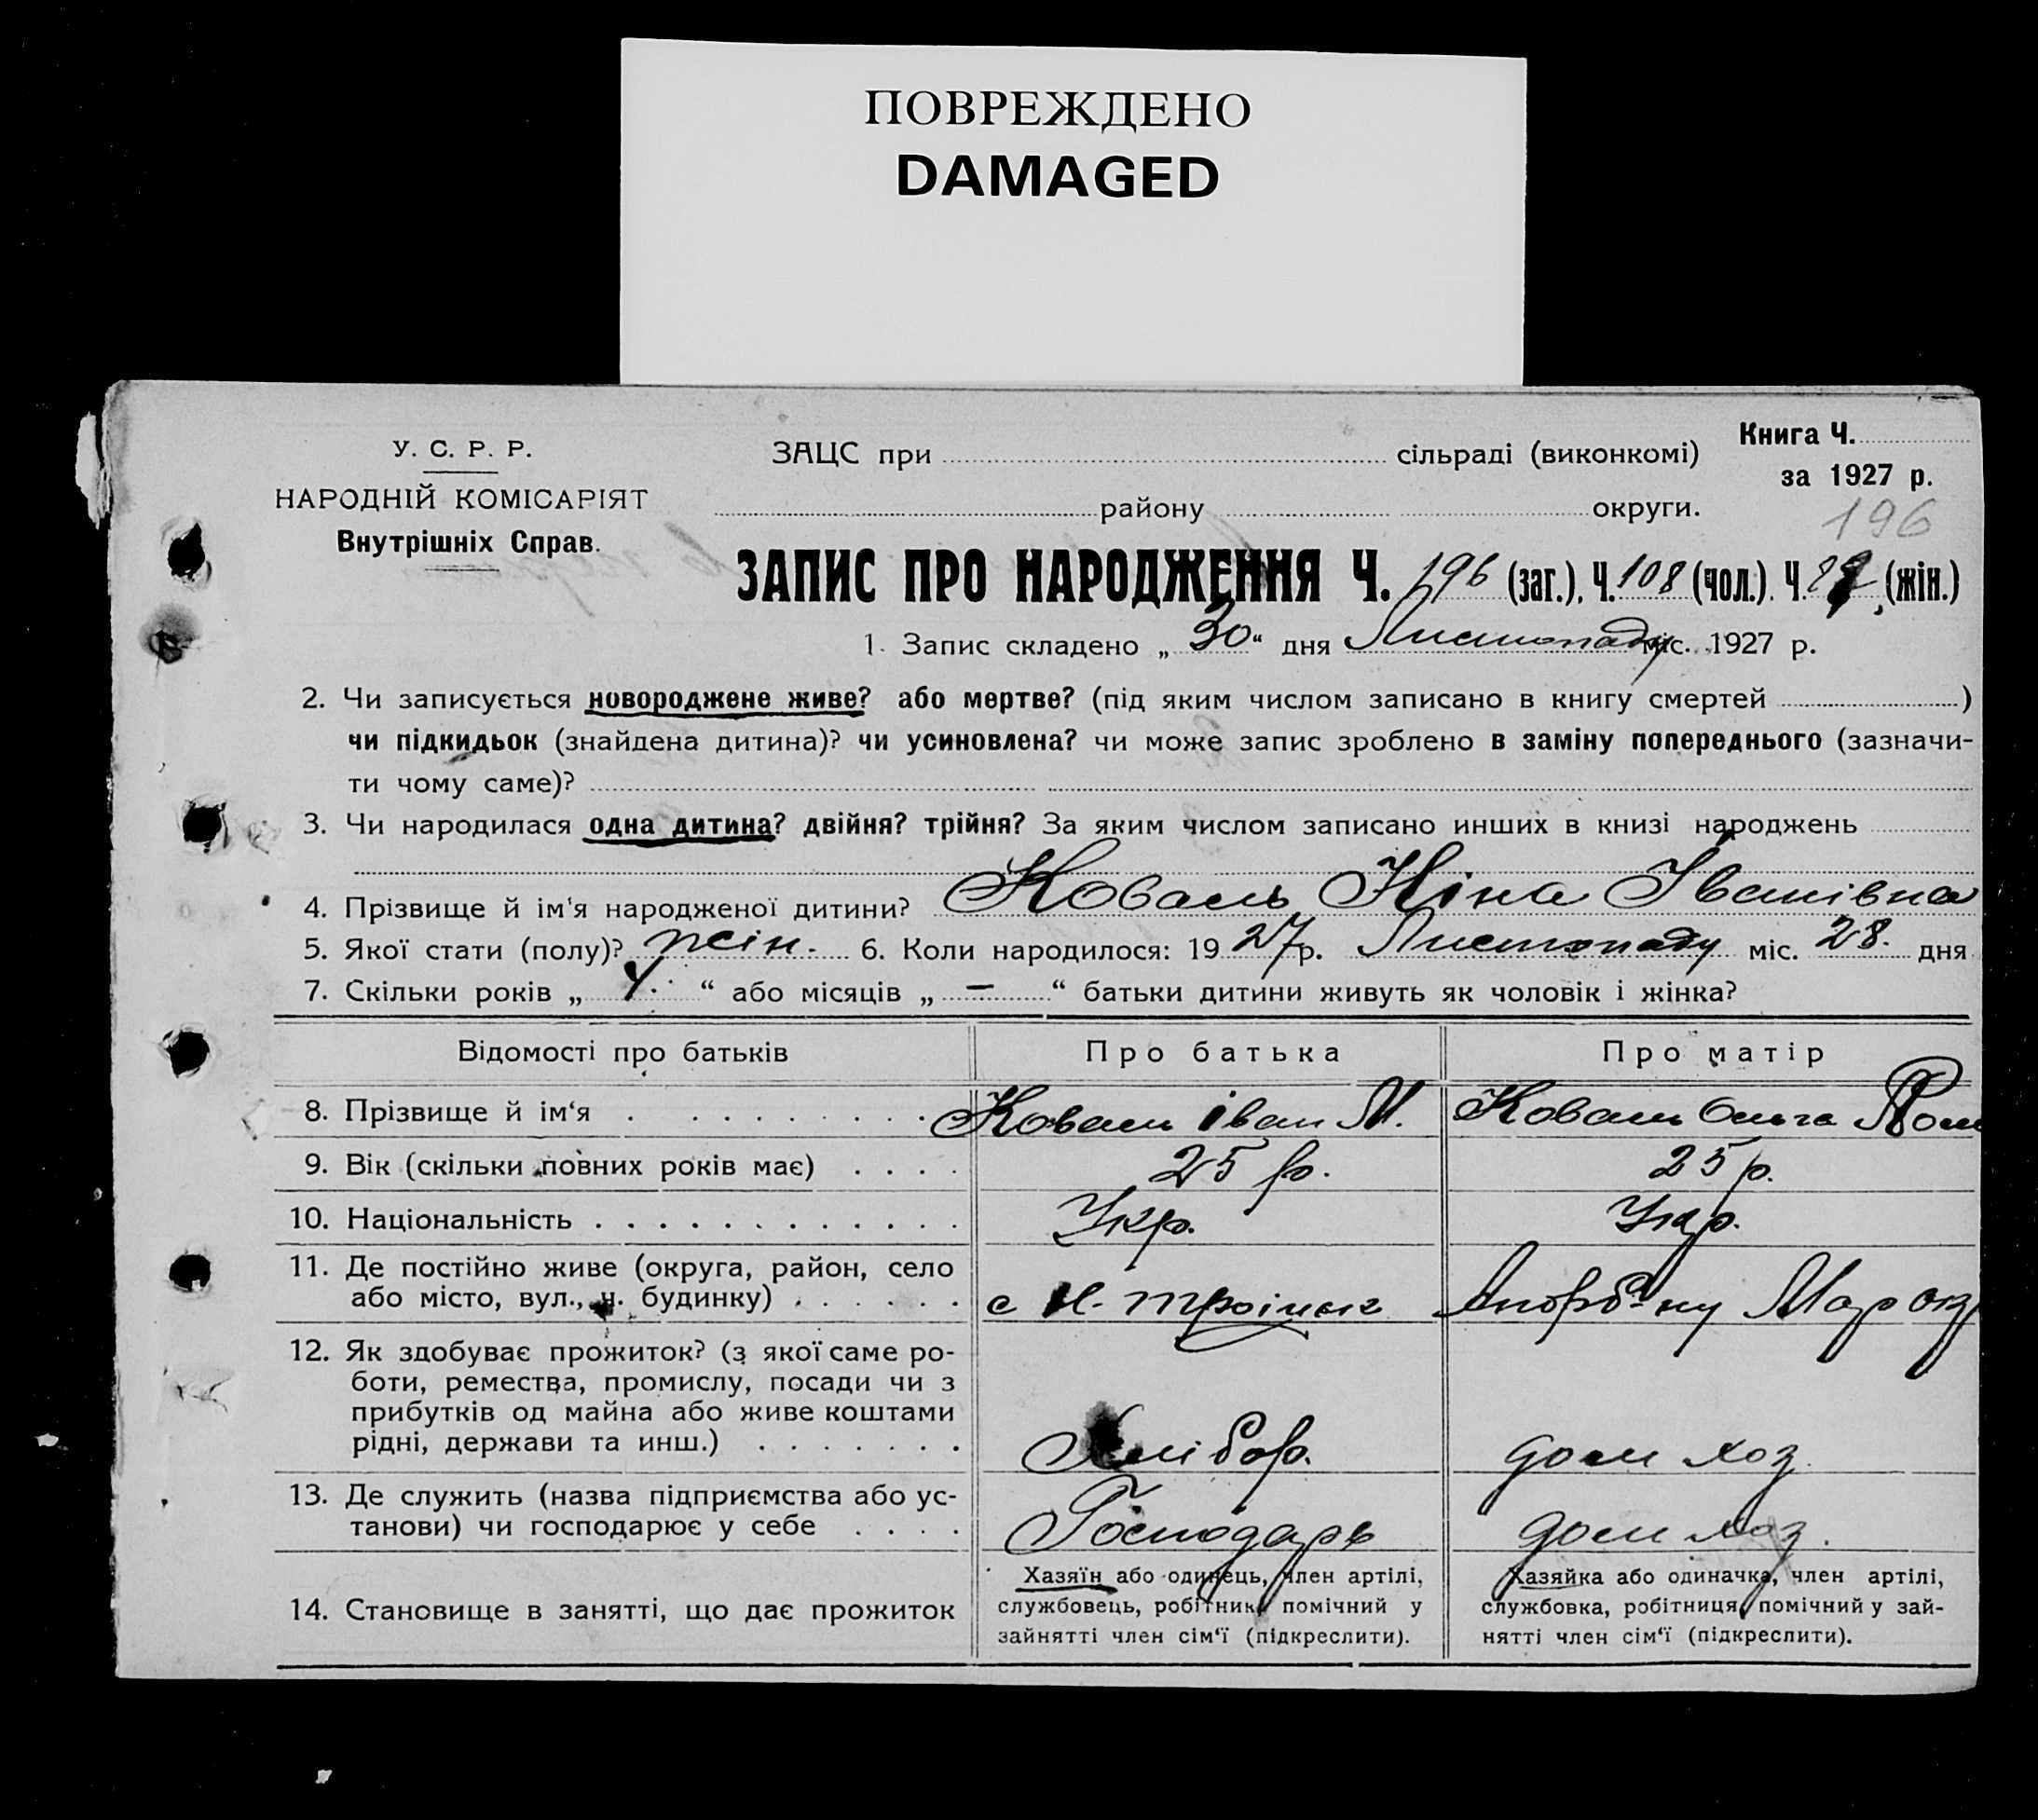 ПОВРЕЖДЕНО
DAMAGED
У. С. Р. Р.
НАРОДНІЙ КОМІСАРІЯТ
Внутрішніх Справ.
ЗАЦС при сільраді (виконкомі)
району округи.
Книга Ч.
за 1927 р.
196
ЗАПИС ПРО НАРОДЖЕННЯ Ч. 196 (заг.). Ч. 108 (чол.). Ч. (жін.)
1. Запис складено „ 30 “ дня Листопаду міс. 1927 р.
2. Чи записується новороджене живе? або мертве? (під яким числом записано в книгу смертей )
чи підкидьок (знайдена дитина)? чи усиновлена? чи може запис зроблено в заміну попереднього (зазначи-
ти чому саме)?
3. Чи народилася одна дитина? двійня? трійня? За яким числом записано инших в книзі народжень
4. Прізвище й ім'я народженої дитини? Коваль Ніна Іванівна
5. Якої стати (полу)? жін. 6. Коли народилося: 1927 р. Листопаду міс. 28. дня
7. Скільки років „ 4. “ або місяців „ — “ батьки дитини живуть як чоловік і жінка?
Відомості про батьків Про батька Про матір
8. Прізвище й ім‘я . . . . . . . . Коваль Іван М. Коваль Ольга
9. Вік (скільки повних років має) . . . . 25 р. 25 р.
10. Національність . . . . . . . . . . . . . Укр. Укр.
11. Де постійно живе (округа, район, село
або місто, вул., ч. будинку) . . . . . . с Н. Мар окр
12. Як здобуває прожиток? (з якої саме ро-
боти, ремества, промислу, посади чи з
прибутків од майна або живе коштами
рідні, держави та инш.) . . . . . . . Хлібор. дом хоз.
13. Де служить (назва підприємства або ус-
танови) чи господарює у себе . . . . Господарь дом хоз.
14. Становище в занятті, що дає прожиток
Хазяїн або одинець, член артілі,
службовець, робітник, помічний у
зайнятті член сім‘ї (підкреслити).
Хазяйка або одиначка, член артілі,
службовка, робітниця, помічний у зай-
нятті член сім‘ї (підкреслити).